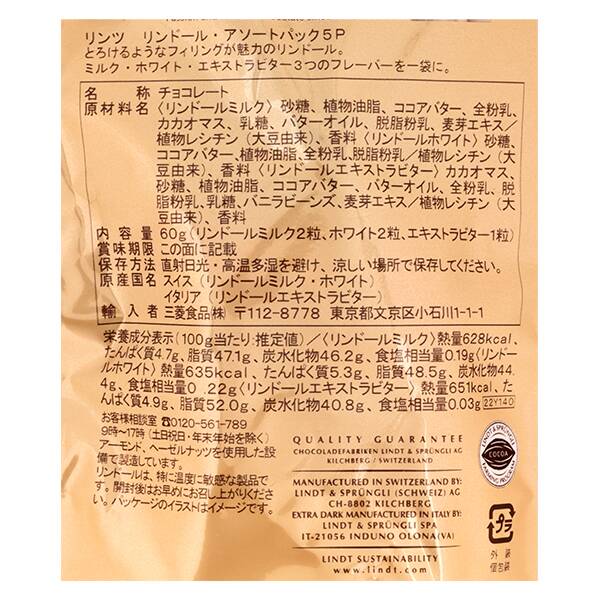 リンツ リンドール・アソートパック５Ｐ
とろけるようなフィリングが魅力のリンドール。
ミルク・ホワイト・エキストラビター３つのフレーバーを一袋に。
名称 チョコレート
原材料名 〈リンドールミルク〉砂糖、植物油脂、ココアバター、全粉乳、
カカオマス、乳糖、バターオイル、脱脂粉乳、麦芽エキス／
植物レシチン（大豆由来）、香料〈リンドールホワイト〉砂糖、
ココアバター、植物油脂、全粉乳、脱脂粉乳／植物レシチン（大
豆由来）、香料〈リンドールエキストラビター〉カカオマス、
砂糖、植物油脂、ココアバター、バターオイル、全粉乳、脱
脂粉乳、乳糖、バニラビーンズ、麦芽エキス／植物レシチン（大
豆由来）、香料
内容量 60g（リンドールミルク2粒、ホワイト2粒、エキストラビター1粒）
賞味期限 この面に記載
保存方法 直射日光・高温多湿を避け、涼しい場所で保存してください。
原産国名 スイス（リンドールミルク・ホワイト）
イタリア（リンドールエキストラビター）
輸入者 三菱食品㈱ 〒112-8778 東京都文京区小石川1-1-1
栄養成分表示（100g当たり：推定値）／〈リンドールミルク〉熱量628kcal、
たんぱく質4.7g、脂質47.1g、炭水化物46.2g、食塩相当量0.19g〈リンド
ールホワイト〉熱量635kcal、たんぱく質5.3g、脂質48.5g、炭水化物44.
4g、食塩相当量0.22g〈リンドールエキストラビター〉熱量651kcal、たん
ぱく質4.9g、脂質52.0g、炭水化物40.8g、食塩相当量0.03g 22Y140
お客様相談室 0120-561-789
9時〜17時（土日祝日・年末年始を除く）
アーモンド、ヘーゼルナッツを使用した設
備で製造しています。
リンドールは、特に温度に敏感な製品で
す。開封後はお早めにお召し上がりくださ
い。パッケージのイラストはイメージです。
QUALITY GUARANTEE
CHOCOLADEFABRIKEN LINDT & SPRÜNGLI AG
KILCHBERG / SWITZERLAND
MANUFACTURED IN SWITZERLAND BY:
LINDT & SPRÜNGLI (SCHWEIZ) AG
CH-8802 KILCHBERG
EXTRA DARK MANUFACTURED IN ITALY BY:
LINDT & SPRÜNGLI SPA
IT-21056 INDUNO OLONA(VA)
LINDT SUSTAINABILITY
www.lindt.com
LINDT & SPRÜNGLI
COCOA
FARMING PROGRAM
プラ
外装
個包装